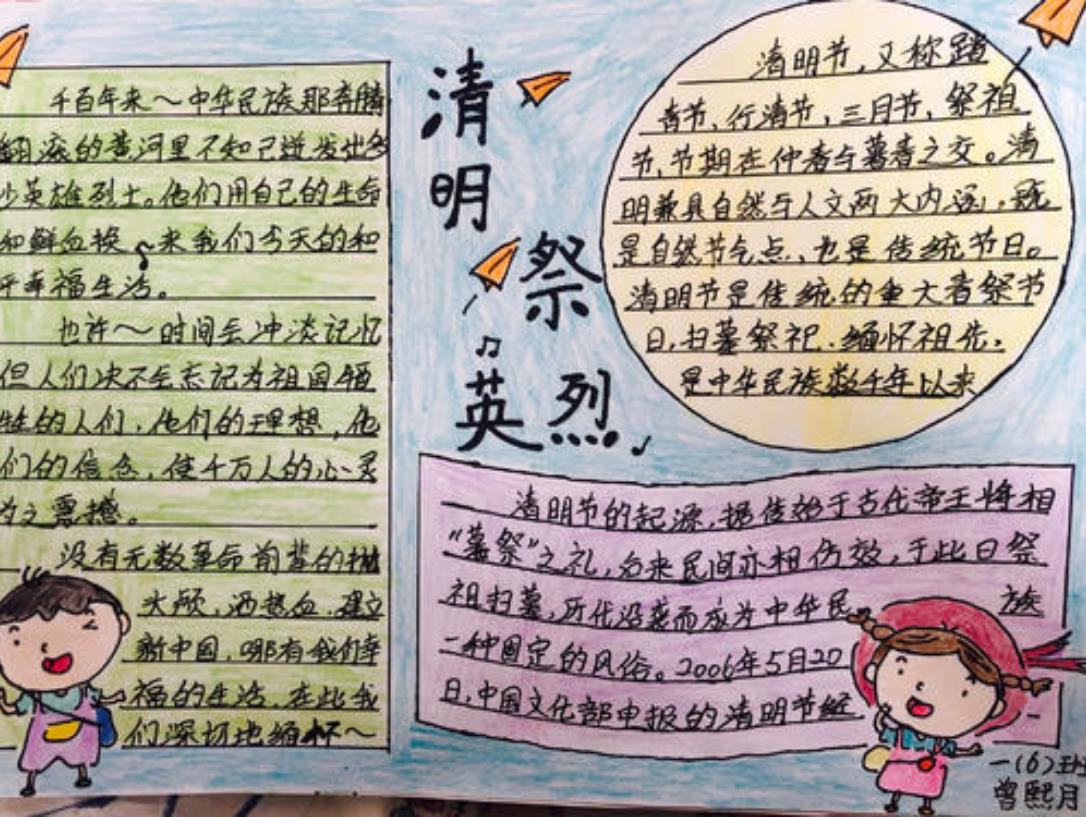 清
明
祭
英烈
千百年来～中华民族那奔腾
翻滚的黄河里不知已迸发出多
少英雄烈士。他们用自己的生命
和鲜血换来我们今天的和
平幸福生活。
也许～时间会冲淡记忆
但人们决不会忘记为祖国牺
牲的人们，他们的理想，他
们的信念，使千万人的心灵
为之震撼。
没有无数革命前辈的抛
头颅，洒热血，建立
新中国，哪有我们幸
福的生活，在此我
们深切地缅怀～
清明节，又称踏
青节、行清节，三月节、祭祖
节，节期在仲春与暮春之交。清
明兼具自然与人文两大内涵，既
是自然节气点、也是传统节日。
清明节是传统的重大春祭节
日，扫墓祭祀、缅怀祖先，
是中华民族数千年以来
清明节的起源，据传始于古代帝王将相
“墓祭”之礼，后来民间亦相仿效，于此日祭
祖扫墓，历代沿袭而成为中华民族
一种固定的风俗。2006年5月20
日，中国文化部申报的清明节经
一(6)班
曾熙月